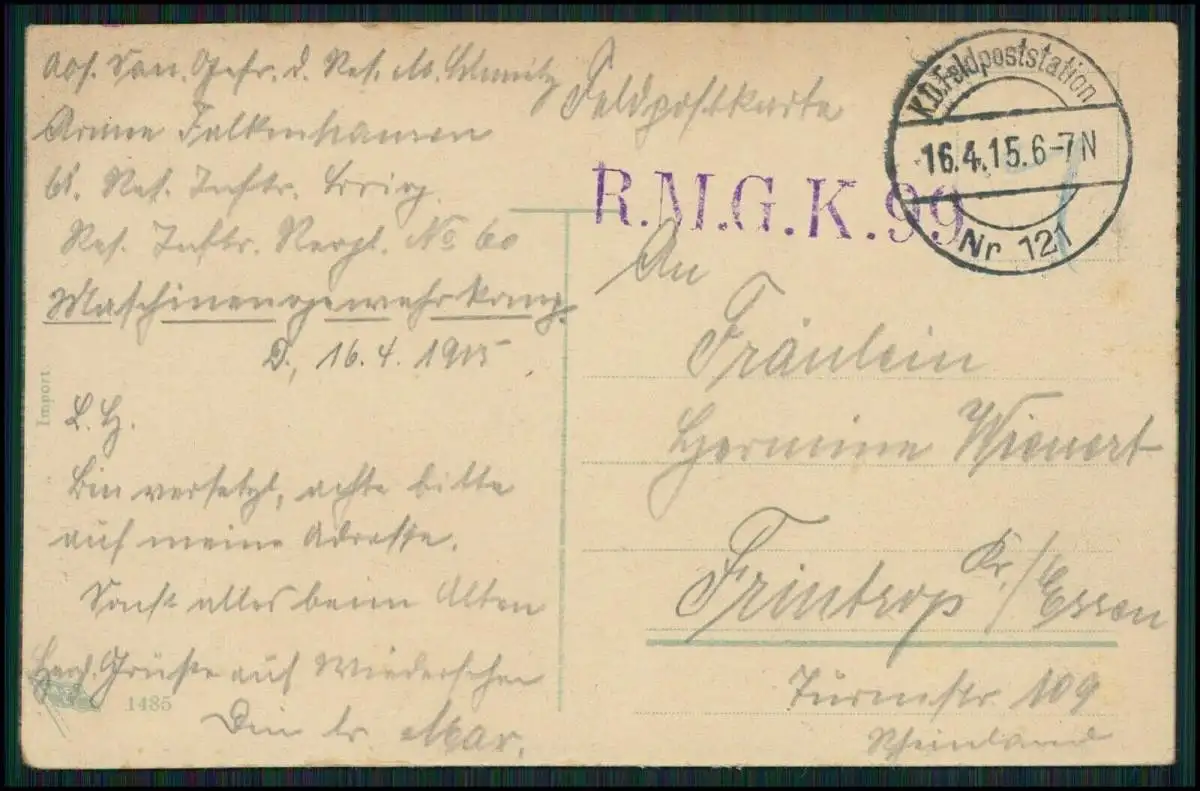 Abs. San. Gefr. d. Res. M. Schmitz
Armee Falkenhausen
61. Res. Inftr. Brig.
Res. Inftr. Regt. No 60
Maschinengewehrkomp.
D., 16.4.1915
L. H.
Bin versetzt, achte bitte
auf meine Adresse.
Sonst alles beim Alten
Herzl. Grüße auf Wiedersehen
Dein lr. Max.
Import
1485
Feldpostkarte
K.D.Feldpoststation
16.4.15.6-7N
Nr 121
R.M.G.K.99
An
Fräulein
Hermine Wienert
Frintrop Kr./Essen
Turmstr. 109
Rheinland